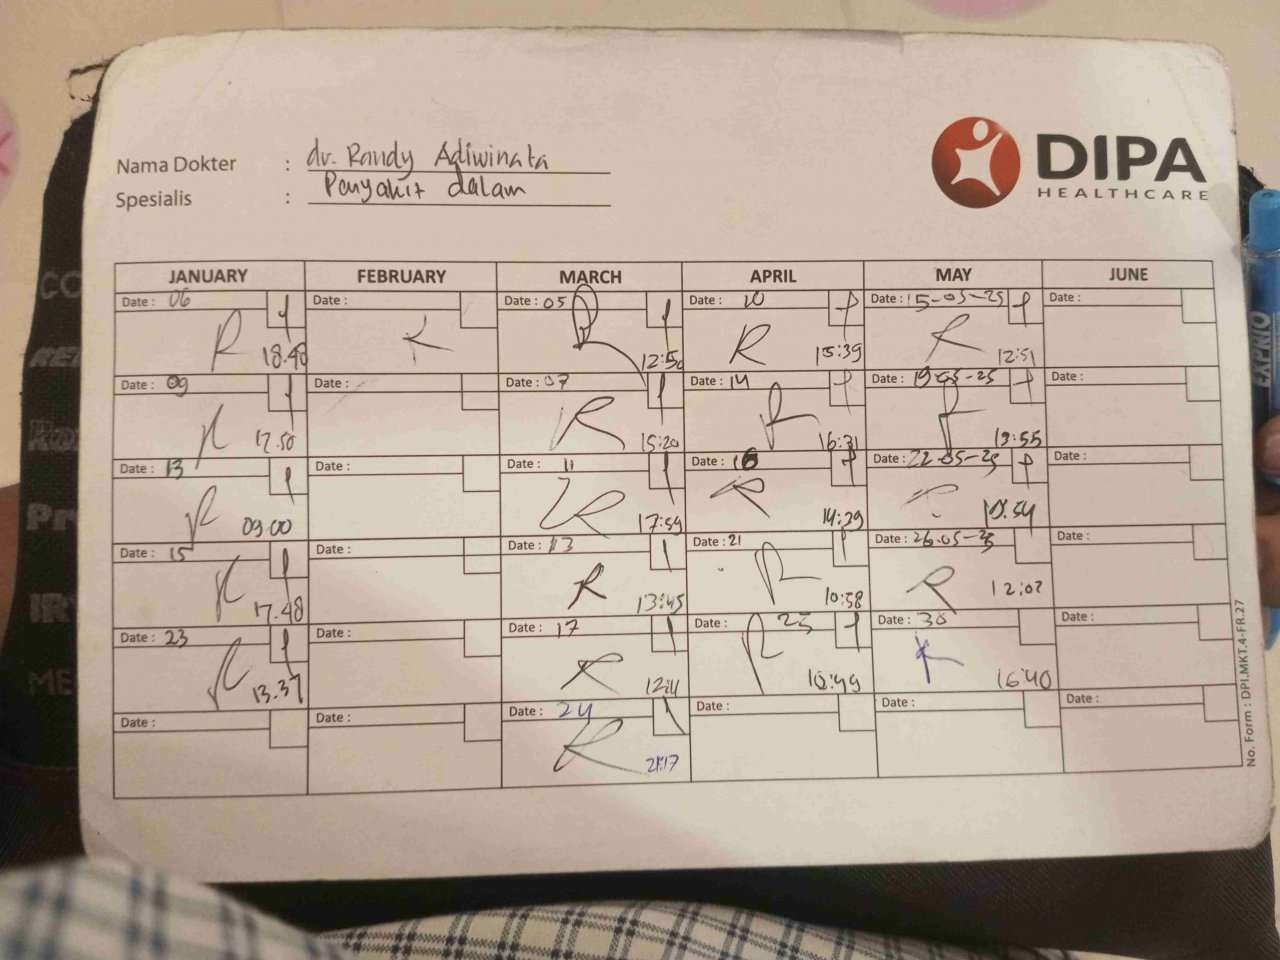 DIPA
HEALTHCARE
Nama Dokter : dr. Randy Adiwinata
Spesialis : Penyakit dalam
JANUARY FEBRUARY MARCH APRIL MAY JUNE
Date : 06 Date : Date : 05 Date : 10 Date : 15-05-25 Date :
18.40 12:50 15:39 12:51
Date : 09 Date : Date : 07 Date : 14 Date : 19-05-25 Date :
17.50 15:20 16:31 19:55
Date : 13 Date : Date : 11 Date : 16 Date : 22-05-25 Date :
09.00 17:59 14:29 18:54
Date : 15 Date : Date : 13 Date : 21 Date : 26-05-25 Date :
17.48 13:45 10:58 12:02
Date : 23 Date : Date : 17 Date : 25 Date : 30 Date :
13.37 12:11 10:49 16:40
Date : Date : Date : 24 Date : Date : Date :
21:17
No. Form : DPI.MKT.4-FR.27
EXPRIO